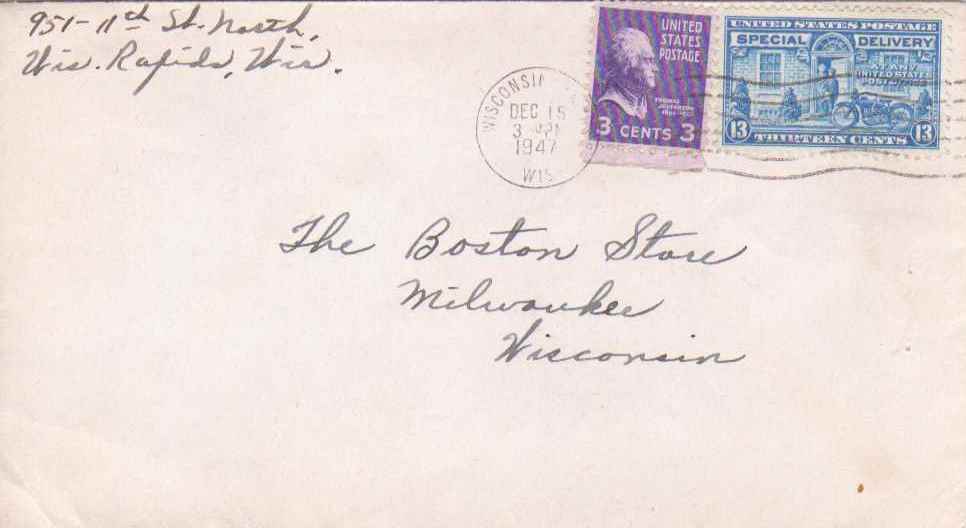 951-11th St. North,
Wis. Rapids, Wis.
WISCONSIN
DEC 15
3 PM
1947
WIS
UNITED
STATES
POSTAGE
THOMAS
JEFFERSON
3 CENTS 3
UNITED STATES POSTAGE
SPECIAL DELIVERY
AT ANY
UNITED STATES
POST OFFICE
13 THIRTEEN CENTS 13
The Boston Store
Milwaukee
Wisconsin